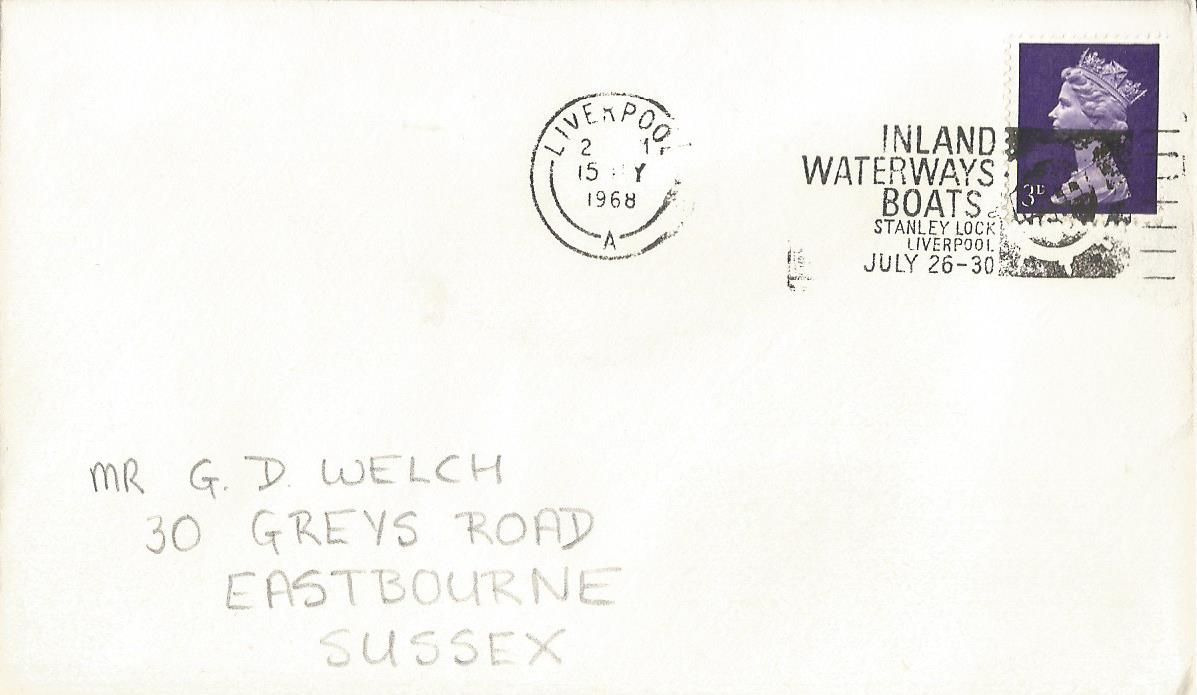 LIVERPOOL
2
15 MY
1968
A
INLAND
WATERWAYS
BOATS
STANLEY LOCK
LIVERPOOL
JULY 26-30
3D
MR G. D. WELCH
30 GREYS ROAD
EASTBOURNE
SUSSEX